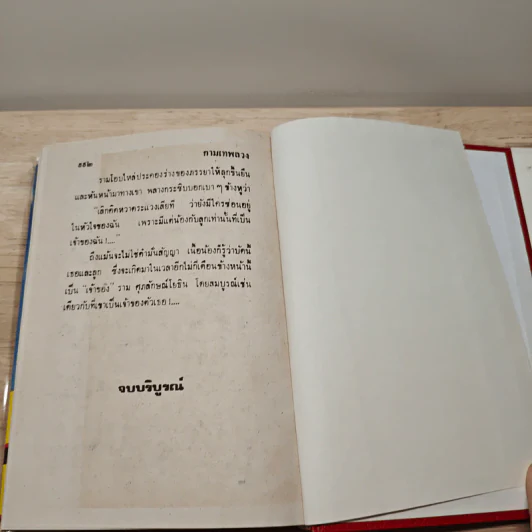 ๕๕๒
กามเทพลวง
รามโอบไหล่ประคองร่างของภรรยาให้ลุกขึ้นยืน
และหันหน้ามาทางเขา พลางกระซิบบอกเบา ๆ ข้างหูว่า
"เลิกคิดหวาดระแวงเสียที ว่ายังมีใครซ่อนอยู่
ในหัวใจของฉัน เพราะมีแต่น้องกับลูกเท่านั้นที่เป็น
เจ้าของฉัน!..."
ถึงแม้นจะไม่ใช่คำมั่นสัญญา เนื้อน้องก็รู้ว่าบัดนี้
เธอและลูก ซึ่งจะเกิดมาในเวลาอีกไม่กี่เดือนข้างหน้านี้
เป็น "เจ้าของ" ราม ศุภลักษณ์โยธิน โดยสมบูรณ์เช่น
เดียวกับที่เขาเป็นเจ้าของตัวเธอ!....
จบบริบูรณ์